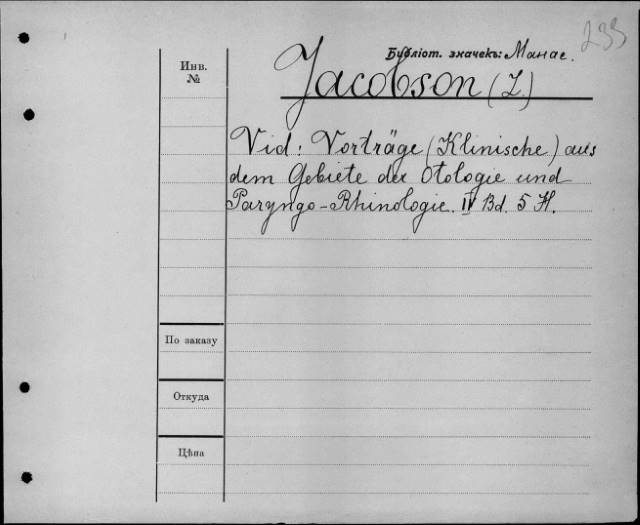 233
Библіот. значекъ: Манас.
Инв.
№
Jacobson (L.)
Vid: Vorträge (Klinische) aus
dem Gebiete der Otologie und
Paryngo-Rhinologie. IV Bd. 5 H.
По заказу
Откуда
Цѣна